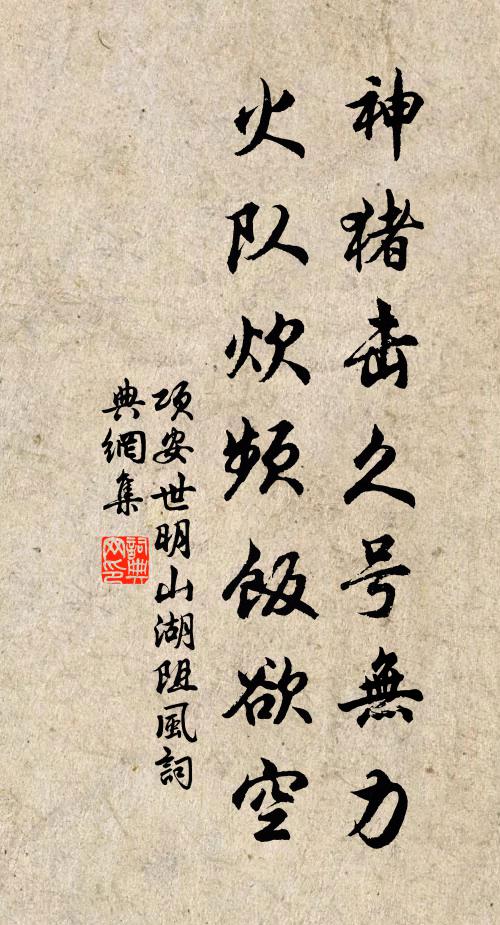 神猪击久号無力
火队炊频飯欲空
项安世明山湖阻風詞
典網集
詞典
网印